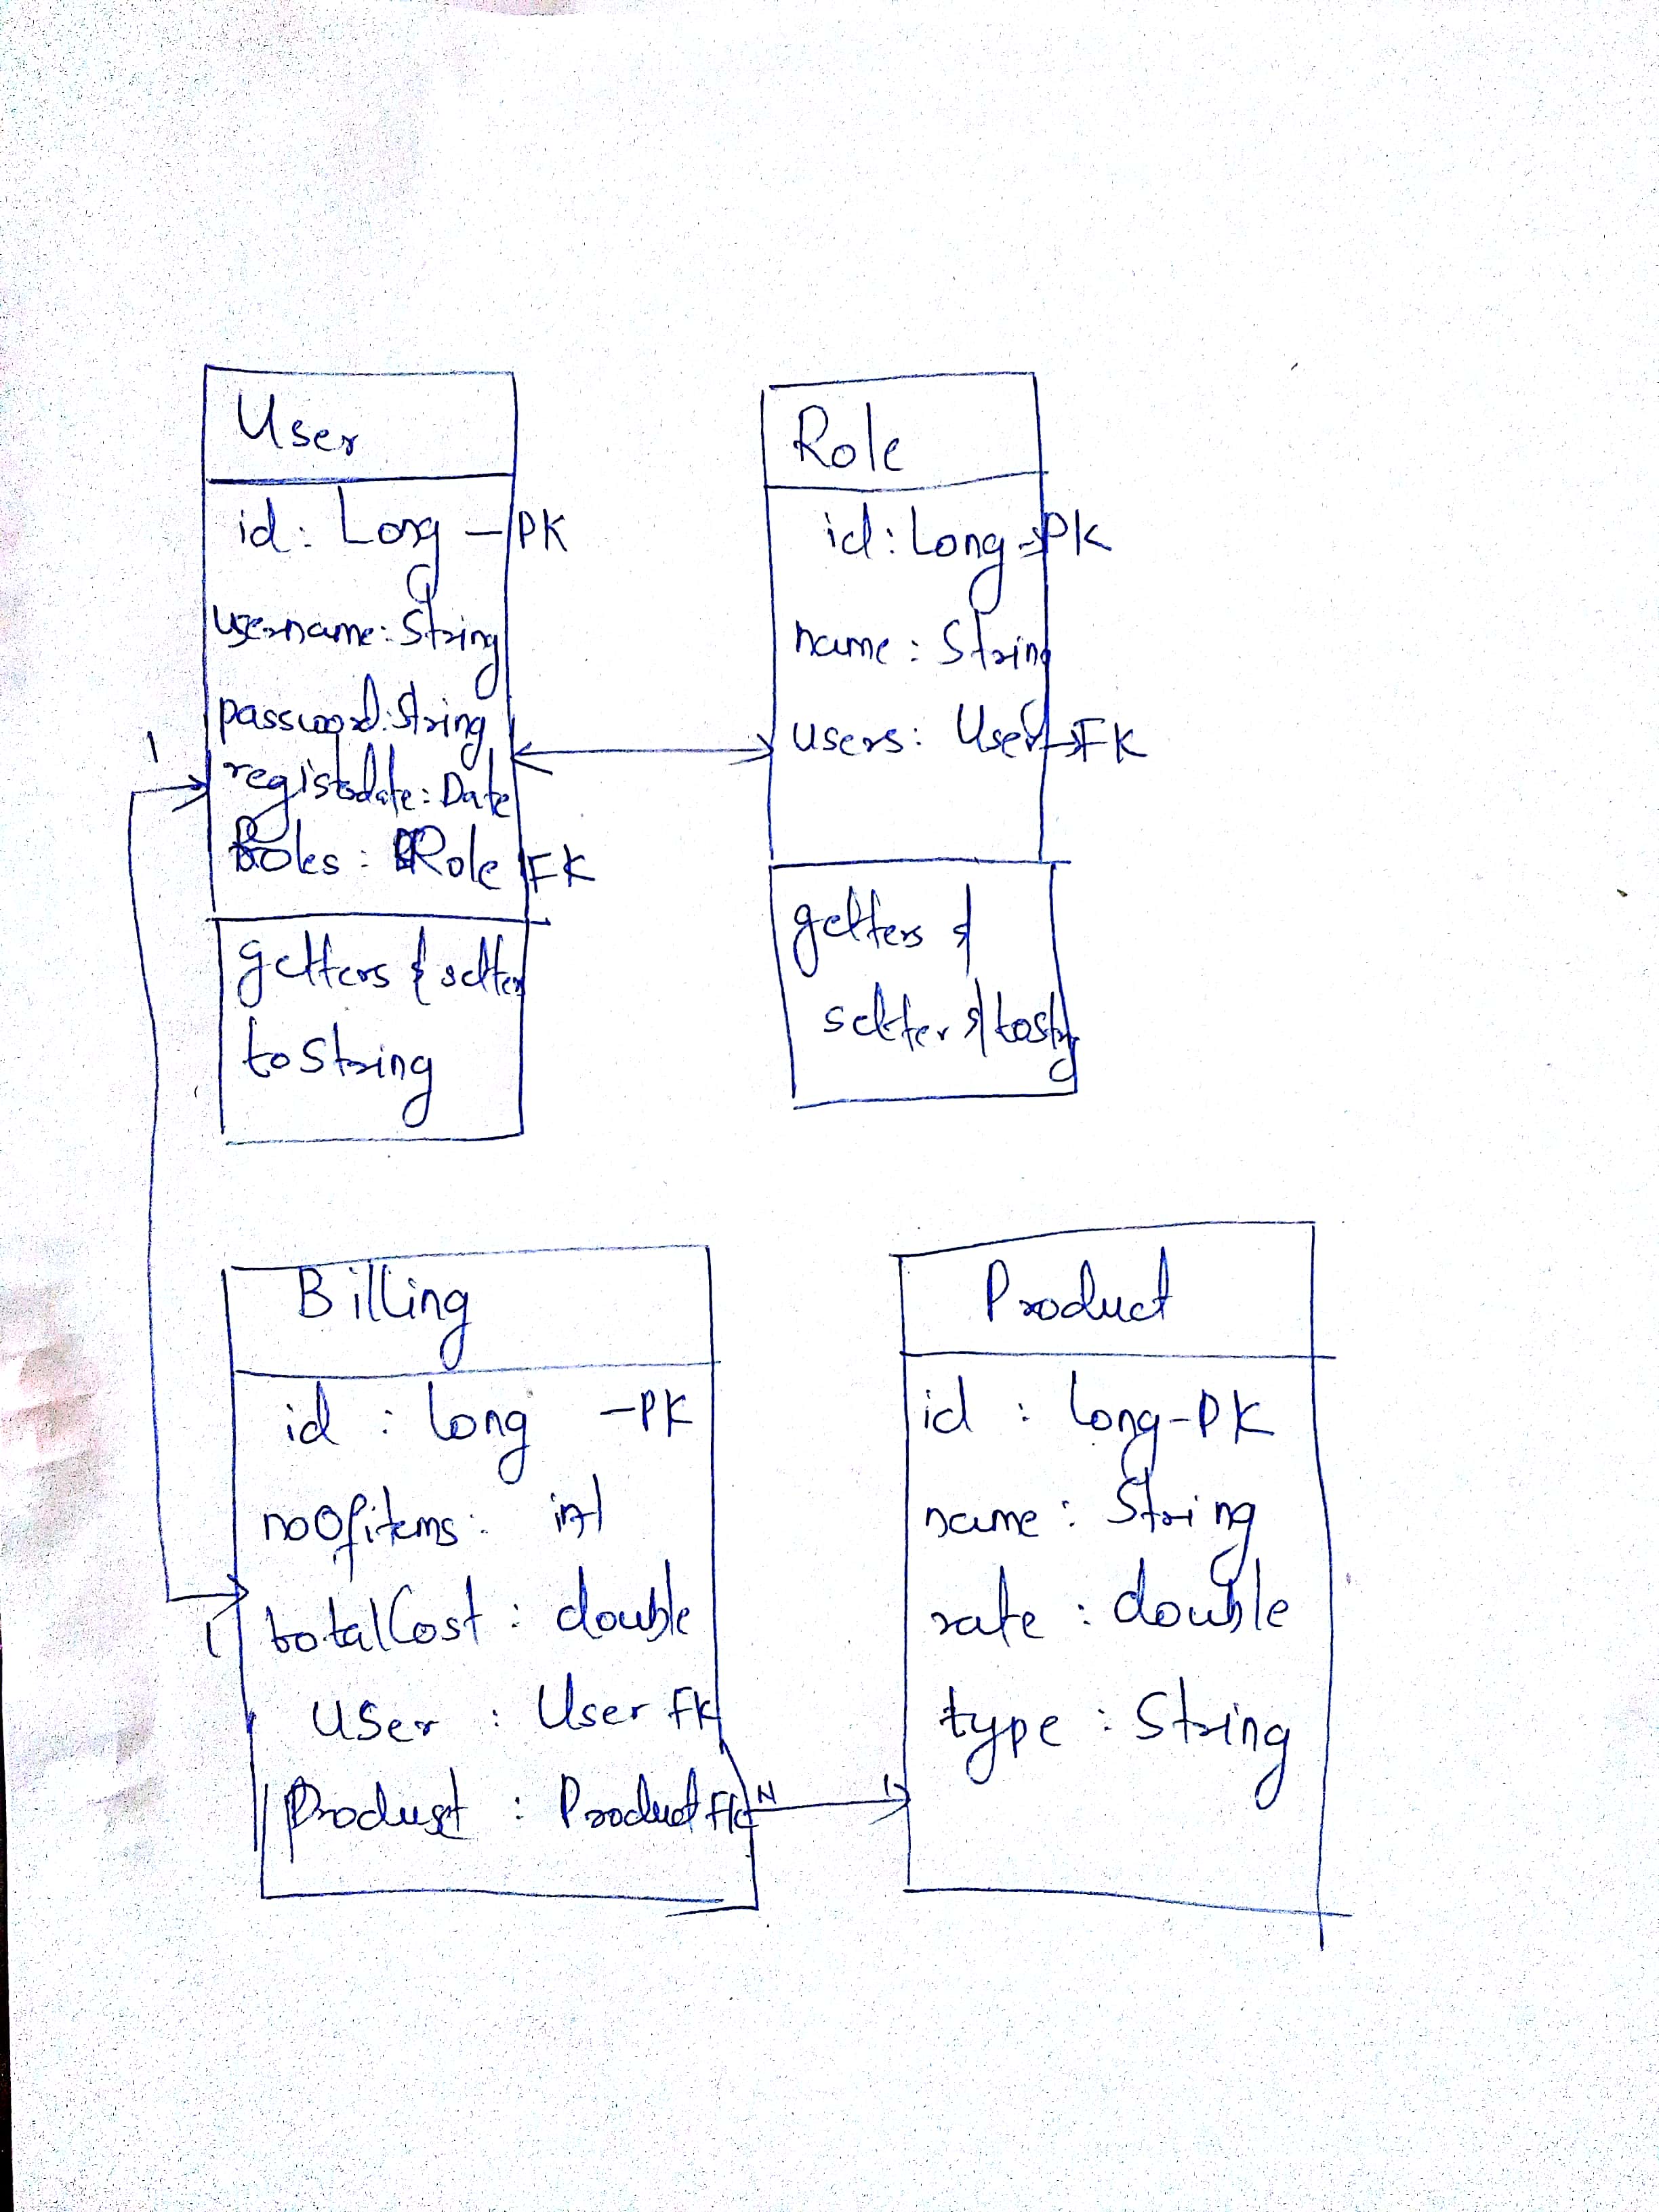 User
id: Long - PK
username: String
password: String
registdate: Date
Roles: Role FK
getters & setter
toString
1
Role
id: Long -> PK
name: String
users: User -> FK
getters &
setter & tostg
Billing
id : long - PK
noOfitems: int
totalCost : double
user : User FK
Product : Product FK
1
N
1
Product
id : long - PK
name : String
rate : double
type : String